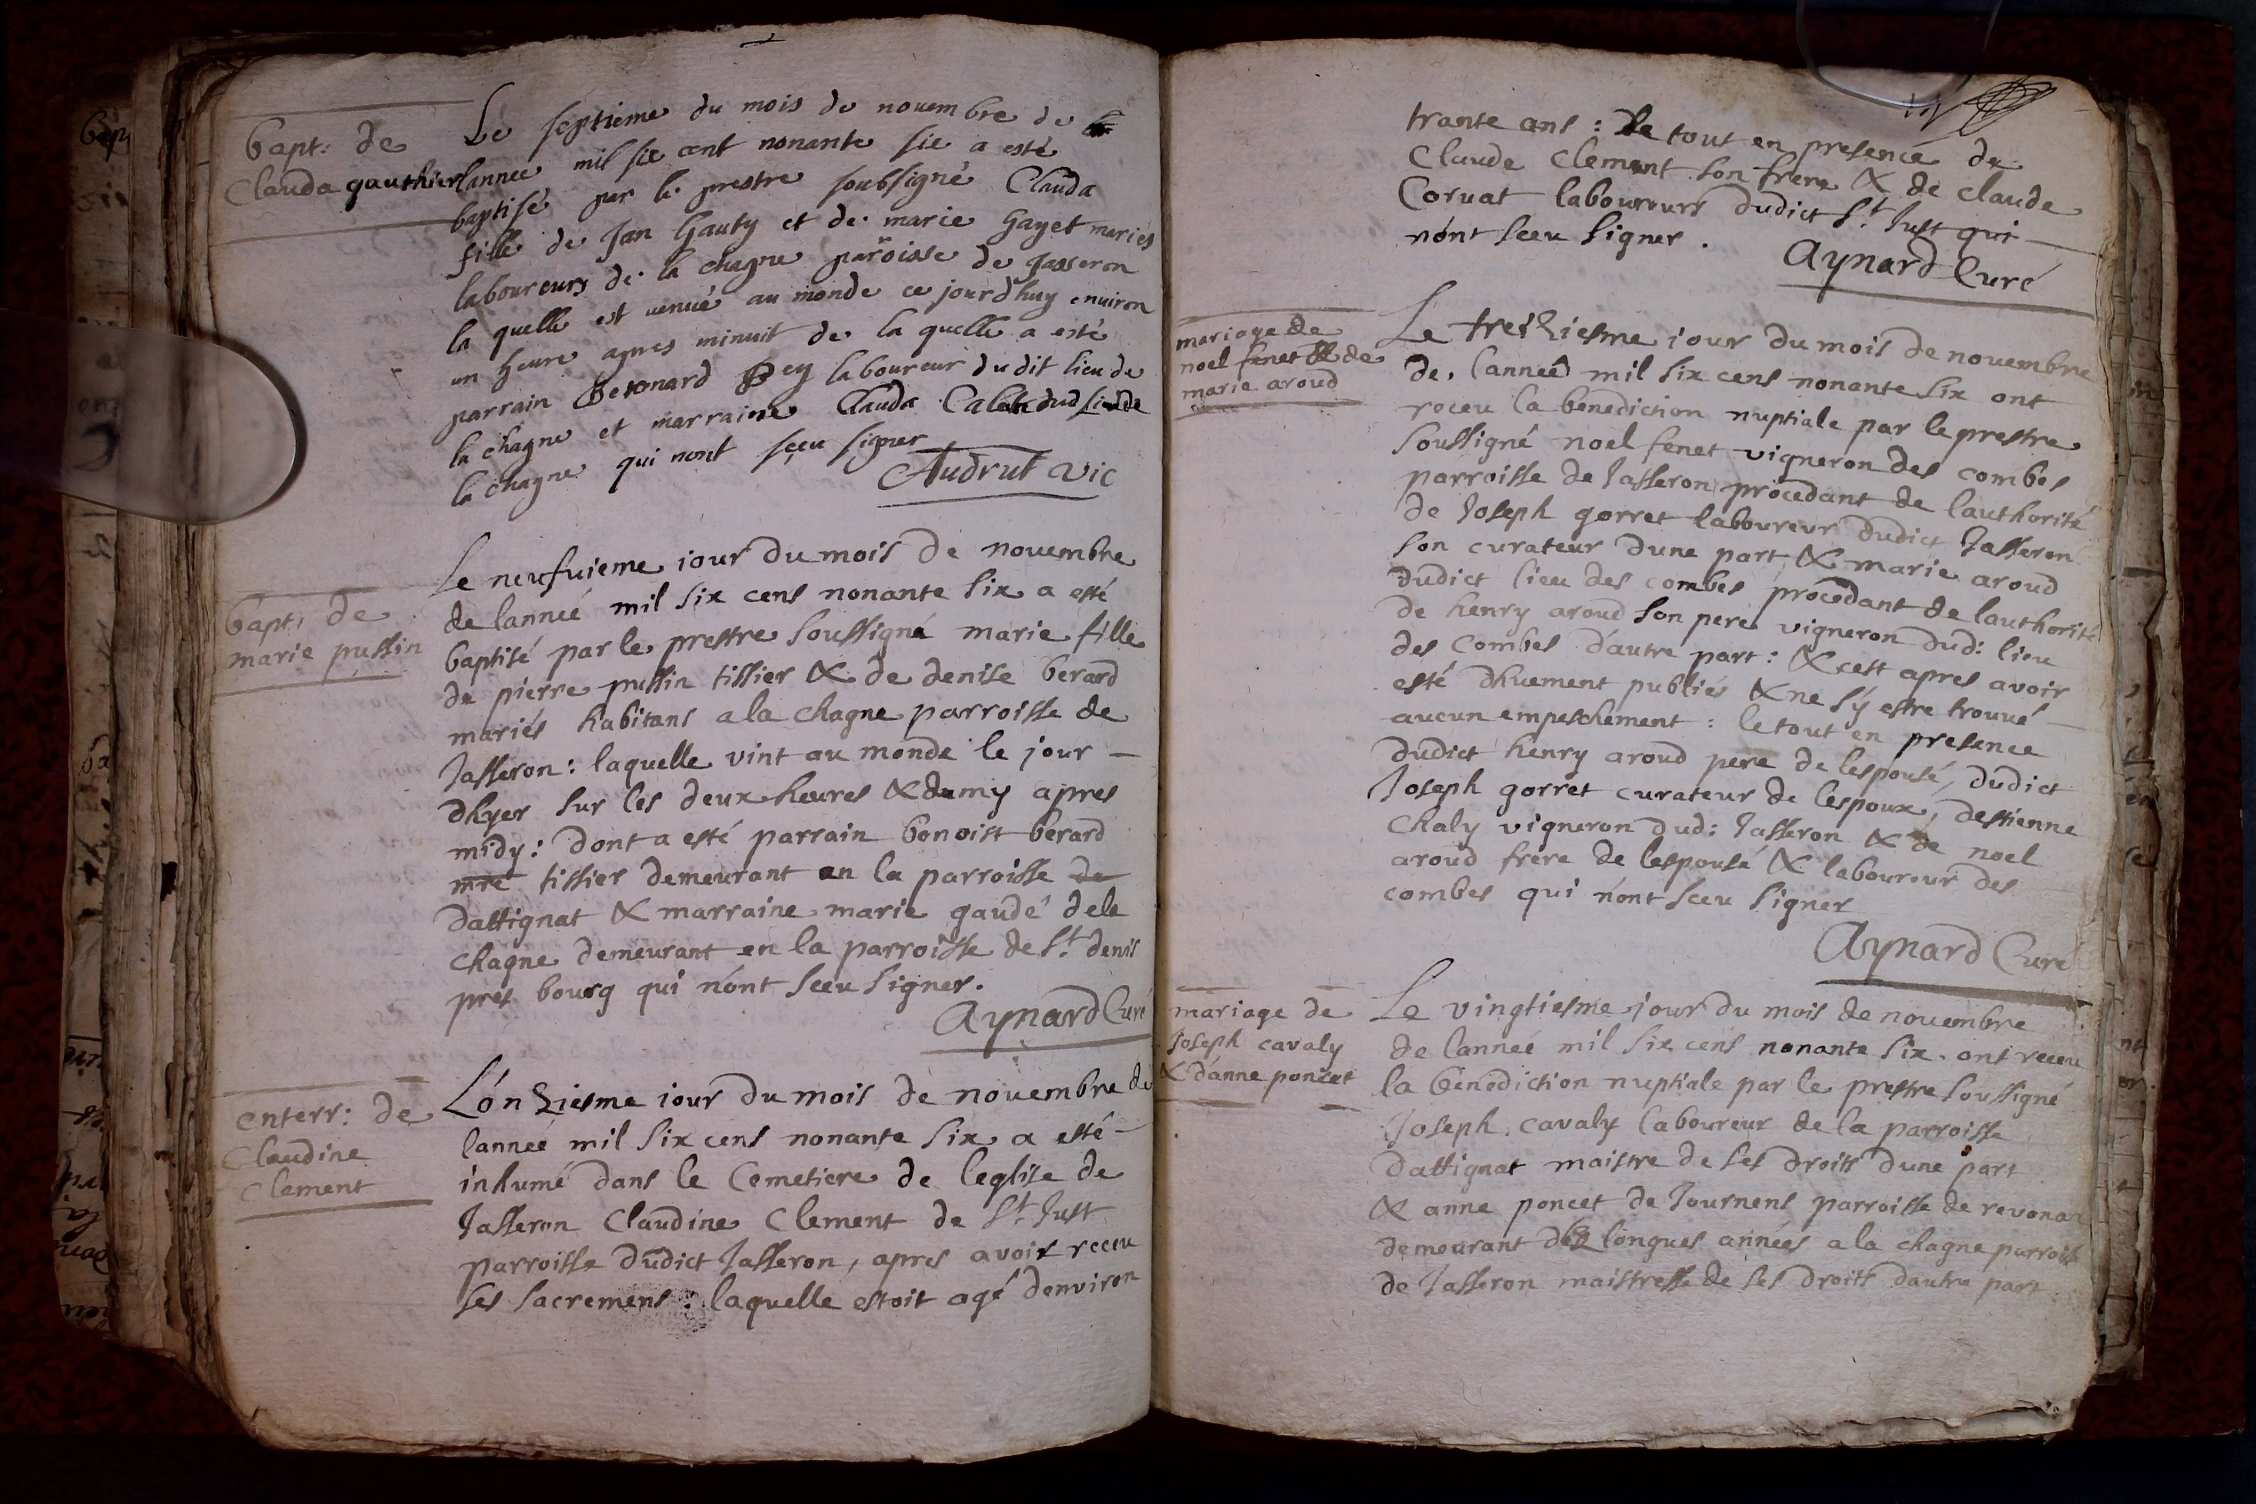 bapt: de
Clauda gauthier
Le septieme du mois de nouembre de
lannee mil sie cent nonante sie a esté
baptisé par le prestre soubsigné Clauda
fille de Jan Gauty et de marie Gayet mariés
laboureurs de la chagne paroisse de Jasseron
la quelle est venué au monde ce jourdhuy enuiron
un heure apres minuit de la quelle a esté
parrain Bey laboureur du dit lieu de
la chagne et marraine Clauda dud lieu de
la chagne qui nont sçeu signer
Audrut vic
bapt: de
marie pussin
Le neufuieme iour du mois de nouembre
de lanneé mil six cens nonante six a esté
baptisé par le prestre soussigné marie fille
de pierre pussin tissier & de denise berard
mariés habitans a la chagne parroisse de
Jasseron: laquelle vint au monde le jour
dhyer sur les deux heures & demy apres
midy: dont a esté parrain benoist berard
mre tissier demeurant en la parroisse de
dattignat & marraine marie gaudé dele
chagne demeurant en la parroisse de St. denis
pres bourg qui n'ont sceu signer.
Aynard Curé
enterr: de
Claudine
Clement
L'onziesme iour du mois de nouembre de
lanneé mil six cens nonante six a esté
inhumé dans le Cemetiere de leglise de
Jasseron Claudine Clement de St. Just
parroisse dudict Jasseron, apres avoir receu
ses sacremens: laquelle estoit agé denviron
trante ans: le tout en presence de
Claude Clement son frere & de claude
Coruat laboureurs dudict St. Just qui
n'ont sceu signer.
Aynard Curé
mariage de
noel fenet & de
marie aroud
Le treiziesme iour du mois de nouembre
de lanneé mil six cens nonante six ont
receu la benediction nuptiale par le prestre
soussigné noel fenet vigneron des combes
parroisse de Jasseron procedant de lauthorité
de Joseph gorret laboureur dudict Jasseron
son curateur dune part, & marie aroud
dudict lieu des combes procedant de lauthorité
de henry aroud son pere vigneron dud: lieu
des Combes d'autre part: & cest apres avoir
esté dhuement publiés & ne s'y estre trouué
aucun empeschement: le tout en presence
dudict henry aroud pere de lespousé, dudict
Joseph gorret curateur de lespoux, destienne
Chaly vigneron dud: Jasseron & de noel
aroud frere de lespousé & laboureur des
combes qui n'ont sceu signer
Aynard Curé
mariage de
Joseph cavaly
& d'anne poncet
Le vingtiesme jour du mois de nouembre
de lanneé mil six cens nonante six. ont receu
la benediction nuptiale par le prestre soussigné
Joseph cavaly laboureur de la parroisse
dattignat maistre de ses droits dune part
& anne poncet de Journens parroisse de revonas
demeurant des longues années a la chagne parroisse
de Jasseron maistresse de ses droits dautre part